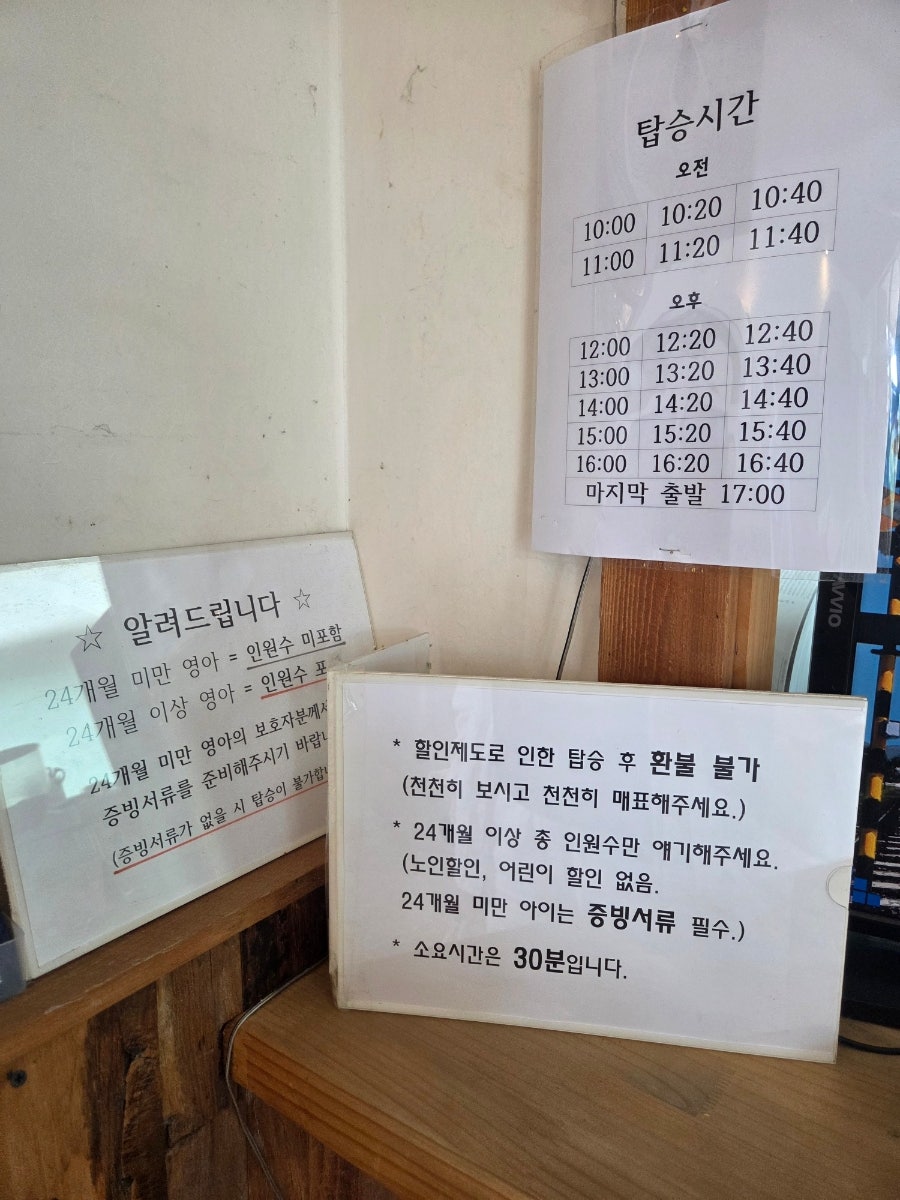 탑승시간
오전
10:00 10:20 10:40
11:00 11:20 11:40
오후
12:00 12:20 12:40
13:00 13:20 13:40
14:00 14:20 14:40
15:00 15:20 15:40
16:00 16:20 16:40
마지막 출발 17:00
☆ 알려드립니다 ☆
24개월 미만 영아 = 인원수 미포함
24개월 이상 영아 = 인원수
24개월 미만 영아의 보호자분께서
증빙서류를 준비해주시기
(증빙서류가 없을 시 탑승이
* 할인제도로 인한 탑승 후 환불 불가
(천천히 보시고 천천히 매표해주세요.)
* 24개월 이상 총 인원수만 얘기해주세요.
(노인할인, 어린이 할인 없음.
24개월 미만 아이는 증빙서류 필수.)
* 소요시간은 30분입니다.